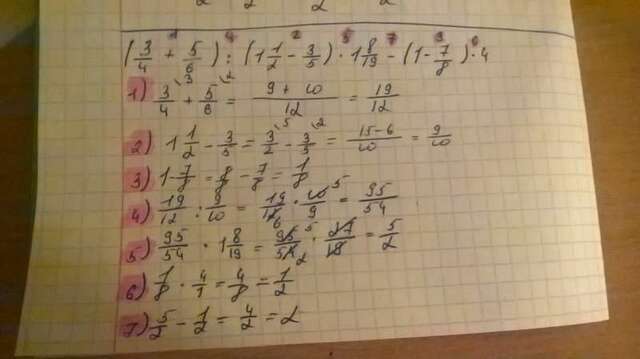 (3/4 + 5/6) : (1 1/2 - 3/5) · 1 8/19 - (1 - 7/8) · 4
1) 3/4 + 5/6 = 9+10/12 = 19/12
2) 1 1/2 - 3/5 = 3/2 - 3/5 = 15-6/10 = 9/10
3) 1 - 7/8 = 8/8 - 7/8 = 1/8
4) 19/12 : 9/10 = 19/12 · 10/9 = 95/54
5) 95/54 · 1 8/19 = 95/54 · 27/19 = 5/2
6) 1/8 · 4/1 = 4/8 = 1/2
7) 5/2 - 1/2 = 4/2 = 2